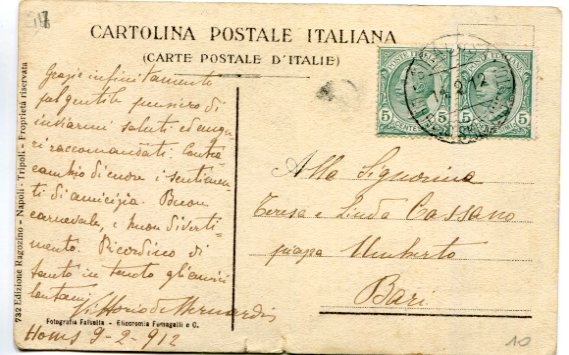 CARTOLINA POSTALE ITALIANA
(CARTE POSTALE D'ITALIE)
Grazie infinitamente
pel gentile pensiero di
inviarmi saluti ed auguri
raccomandati. Contra
cambio di cuore i sentimen
ti di amicizia. Buon
carnevale, e buon diverti
mento. Ricordino di
tanto in tanto gli amici
lontani
Vittorio de Bernardis
Fotografia Falsetta - Eliocromia Fumagalli e C.
Homs 9-2-912
732 Edizione Ragozino - Napoli - Tripoli - Proprietà riservata
POSTE ITALIANE
5 5
CENTES
5 5
Alla Signorina
Teresa e Luda Cassano
piazza Umberto
Bari
10